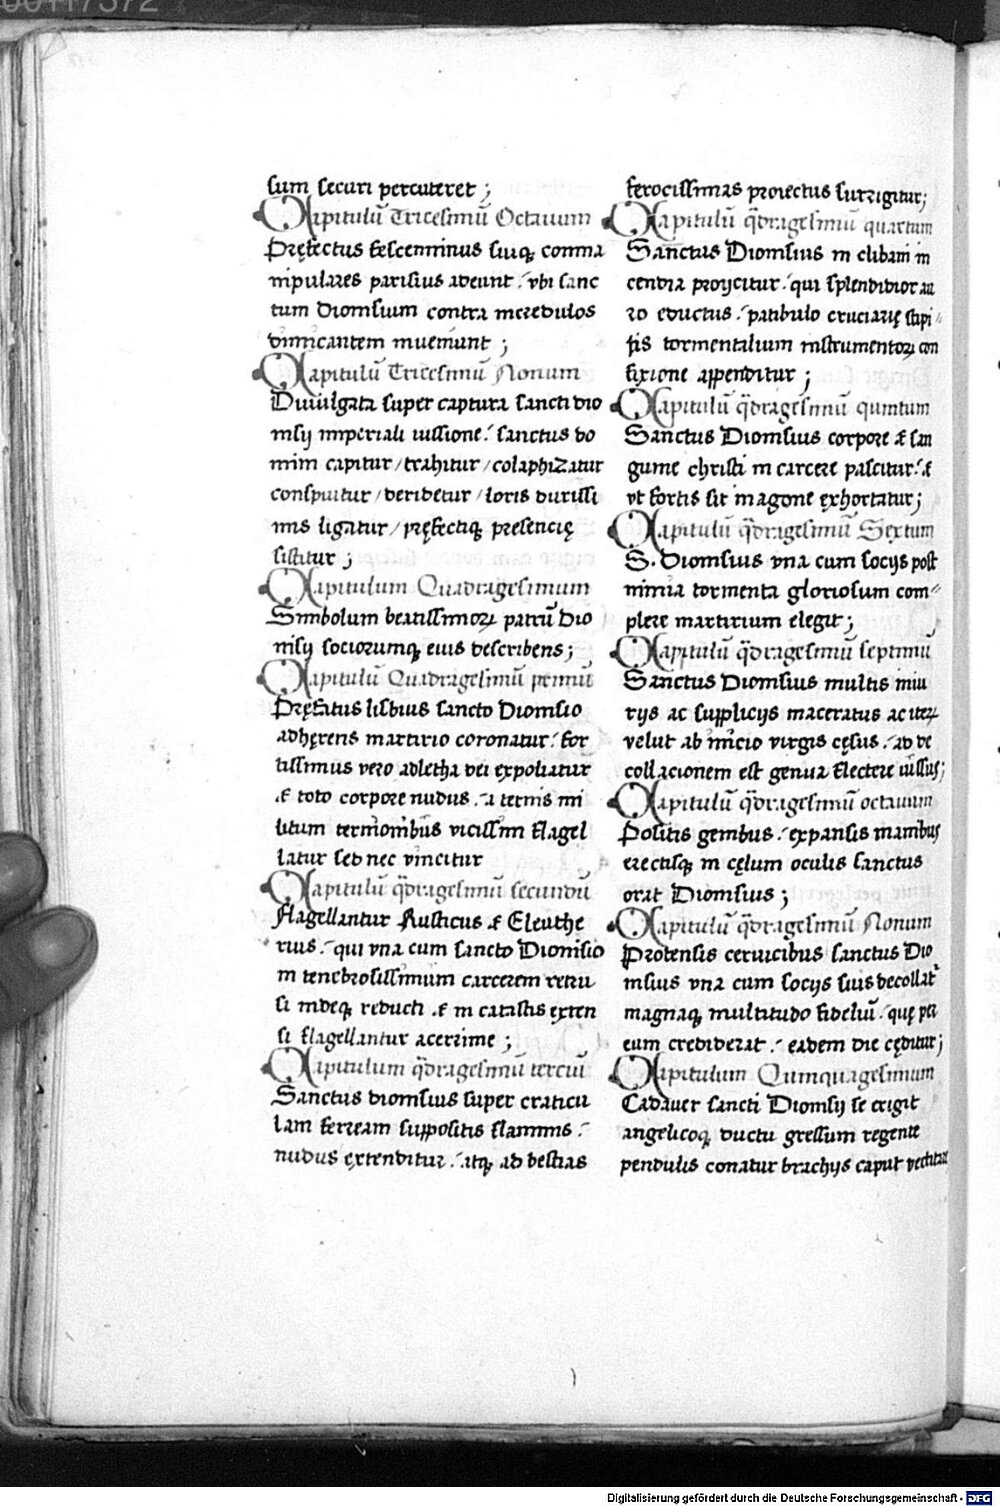 sum securi percuteret ;
Capitulū Tricesimū Octauum
Pręfectus fescenninus suiq; comma
nipulares parisius adeunt : vbi sanc
tum Dionisium contra incredulos
dimicantem inueniunt ;
Capitulū Tricesimū Nonum
Diuulgata super captura sancti dio
nisij imperiali iussione : sanctus do
mini capitur / trahitur / colaphizatur
conspuitur / deridetur / loris durissi
mis ligatur / pręfectiq; presencię
sistitur ;
Capitulum Quadragesimum
Simbolum beatissimoꝝ patrū Dio
nisij sociorumq; eius describens ;
Capitulū Quadragesimū primū
Pręfatus lisbius sancto Dionisio
adhęrens martirio coronatur : for
tissimus vero adletha dei expoliatur
& toto corpore nudus : a ternis mi
litum ternionibus vicissim flagel
latur sed nec vincitur
Capitulū qͣdragesimū secundū
Flagellantur Rusticus & Eleuthe
rius : qui vna cum sancto Dionisio
in tenebrosissimum carcerem retru
si indeq; reducti & in catastis exten
si flagellantur acerrime ;
Capitulum qͣdragesimū terciū
Sanctus dionisius super craticu
lam ferream suppositis flammis :
nudus extenditur : atq; ad bestias
ferocissimas proiectus surrigitur ;
Capitulū qͣdragesimū quartum
Sanctus Dionisius in clibani in
cendia proijcitur : qui splendidior au
ro eductus : patibulo cruciarię stipi
tis tormentalium instrumentoꝝ con
fixione appenditur ;
Capitulū qͣdragesimū quintum
Sanctus Dionisius corpore & san
guine christi in carcere pascitur : &
vt fortis sit in agone exhortatur ;
Capitulū qͣdragesimū Sextum
S. Dionisius vna cum socijs post
nimia tormenta gloriosum com=
plere martirium elegit ;
Capitulū qͣdragesimū septimū
Sanctus Dionisius multis iniu
rijs ac supplicijs maceratus ac iteꝝ
velut ab inicio virgis cęsus : ad de
collacionem est genua flectere iussus ;
Capitulū qͣdragesimū octauum
Positis genibus : expansis manibus
erectisq; in cęlum oculis sanctus
orat Dionisius ;
Capitulū qͣdragesimū Nonum
Protensis ceruicibus sanctus Dio
nisius vna cum socijs suis decollat᷑
magnaq; multitudo fideliū : quę per
eum crediderat : eadem die cęditur ;
Capitulum Quinquagesimum
Cadauer sancti Dionisij se erigit
angelicoq; ductu gressum regente
pendulis conatur brachijs caput vectitare
Digitalisierung gefördert durch die Deutsche Forschungsgemeinschaft - DFG